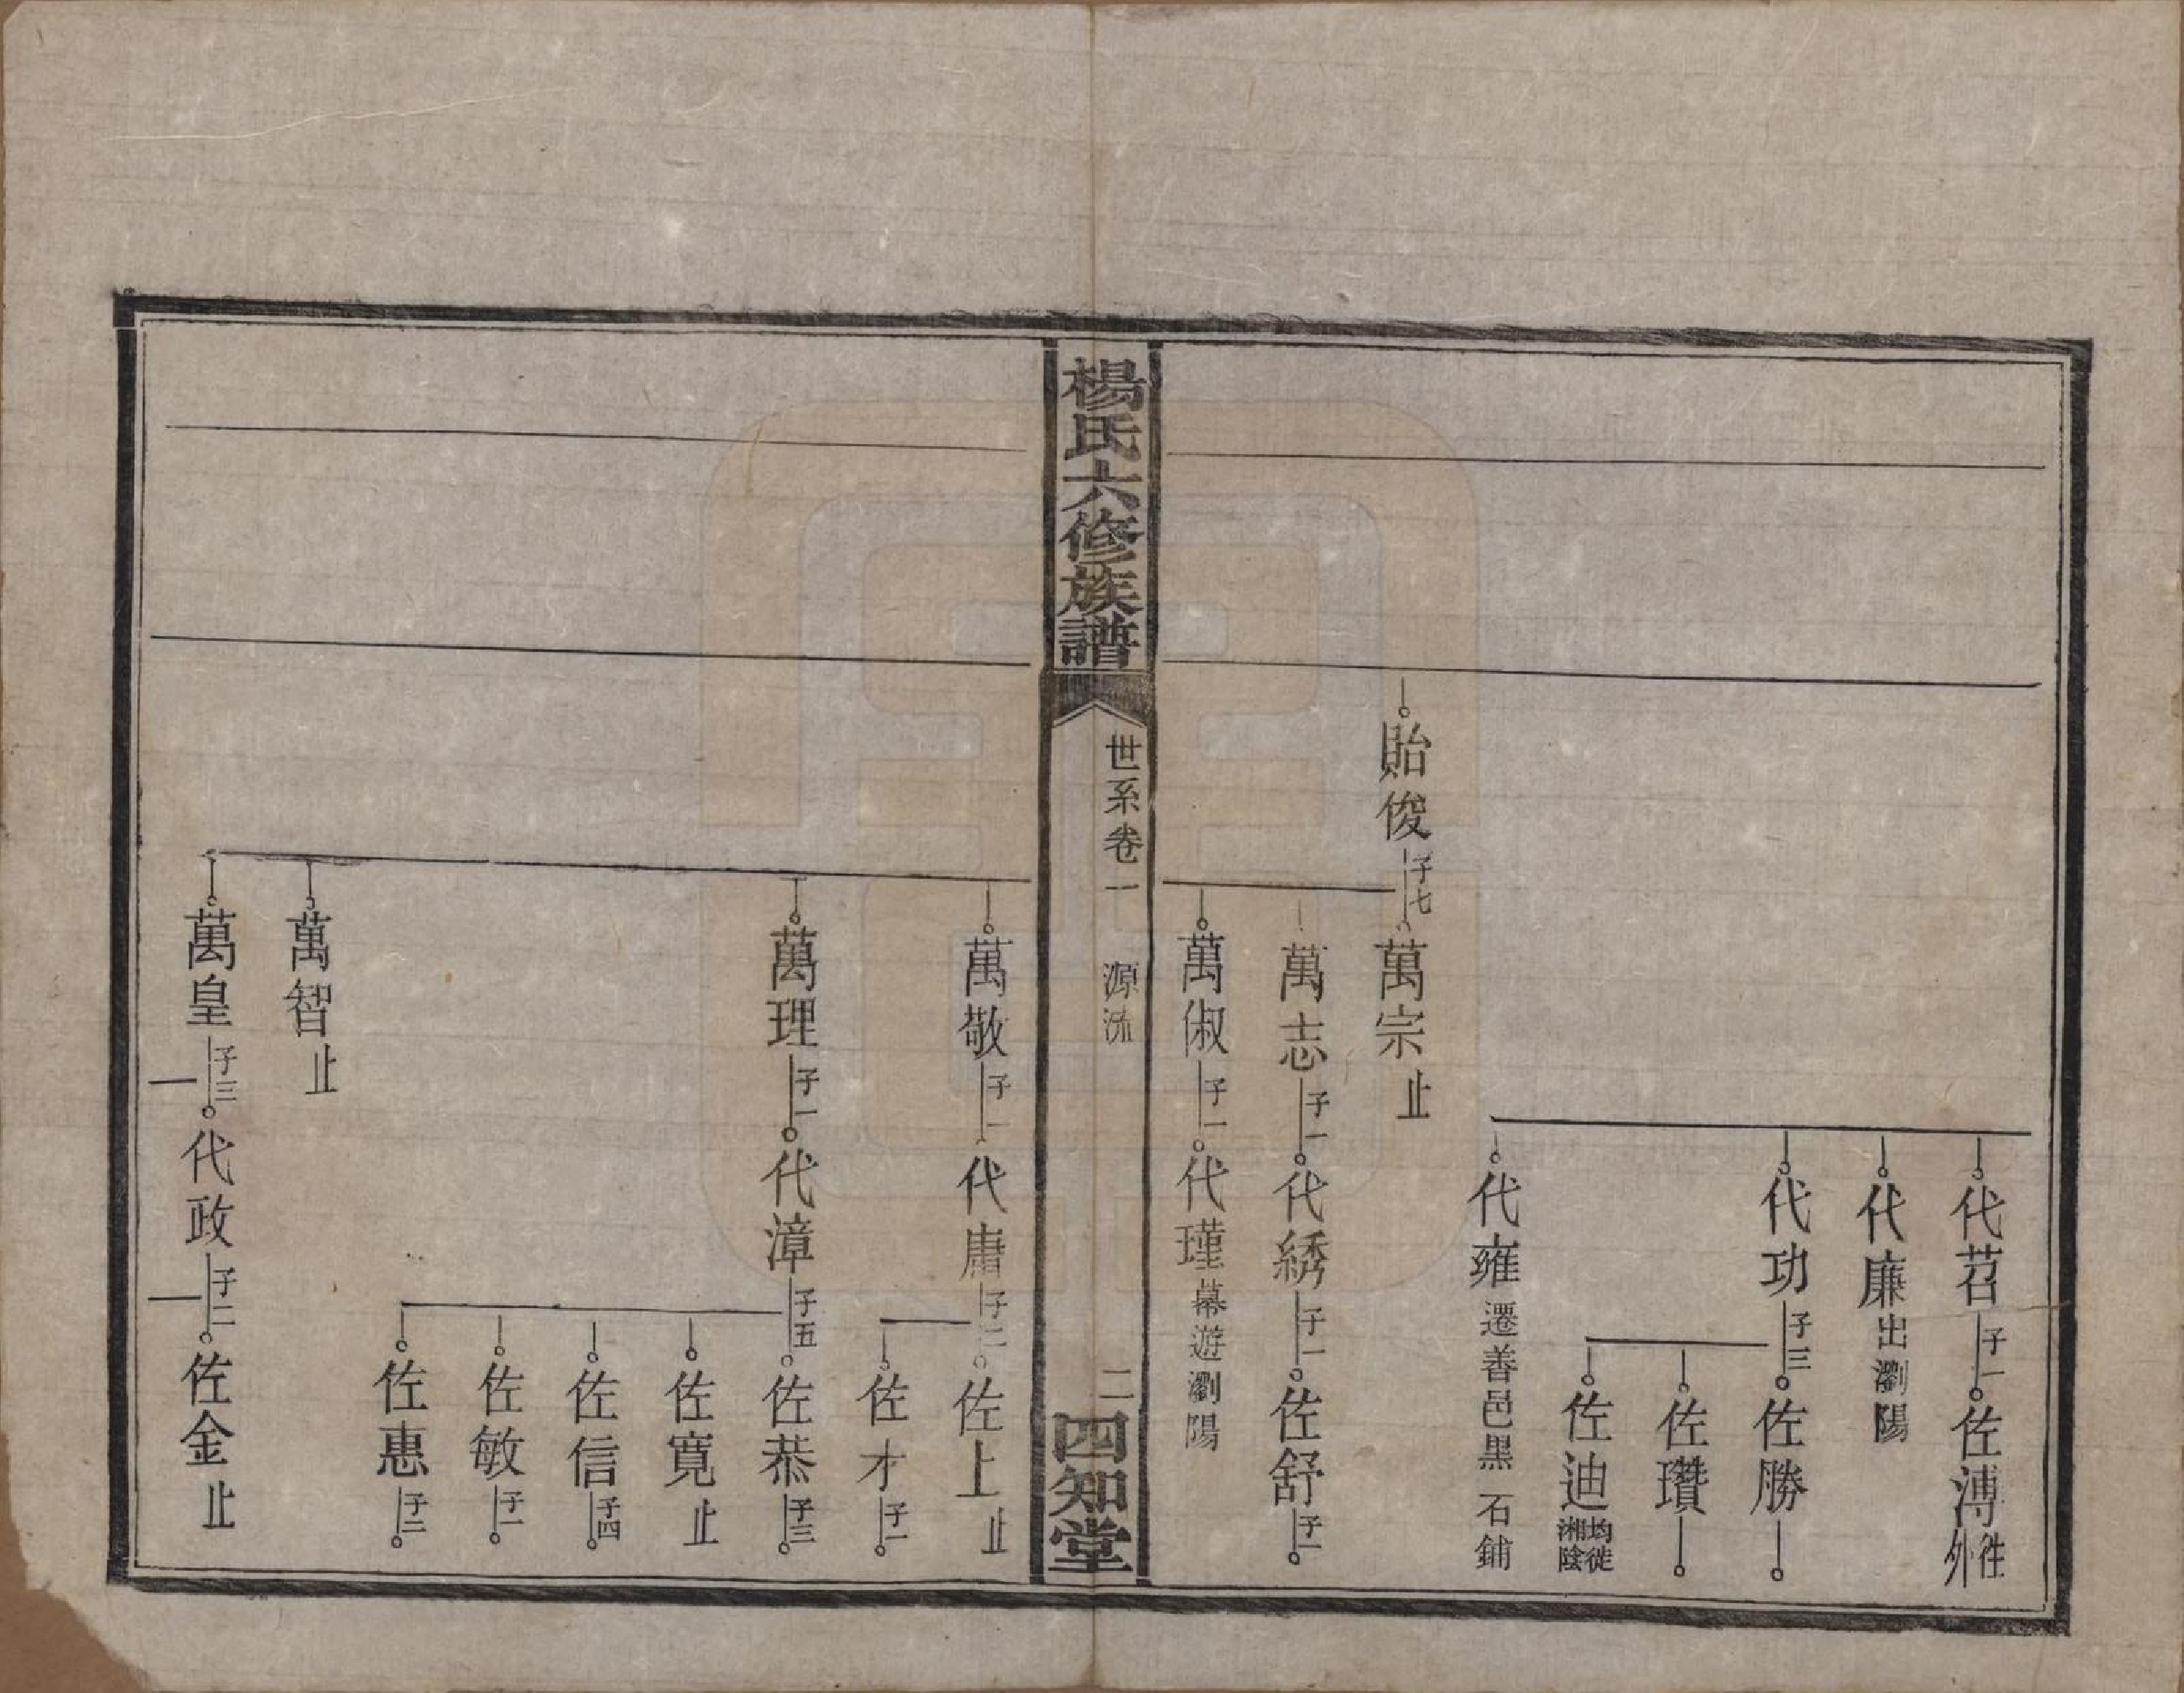 代苕 子一 佐溥 徃外
代廉 出瀏陽
代功 子三 佐勝
佐瓚
佐迪 均徙湘陰
代雍 遷善邑黑石鋪
貽俊 子七 萬宗 止
萬志 子一 代綉 子一 佐舒 子一
萬俶 子一 代瑾 幕遊瀏陽
楊氏六修族譜
世系卷一 源流
二
四知堂
萬敬 子一 代庸 子二 佐上 止
佐才 子一
萬理 子一 代漳 子五 佐恭 子三
佐寬 止
佐信 子四
佐敏 子一
佐惠 子二
萬智 止
萬皇 子三 代政 子二 佐金 止